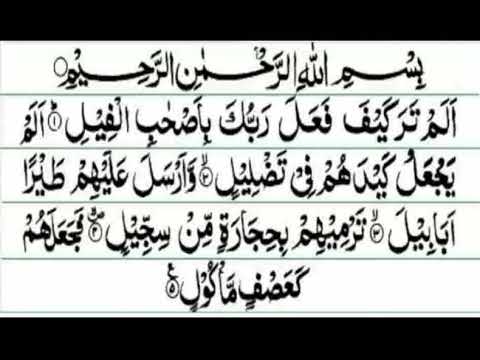 بِسْمِ اللهِ الرَّحْمٰنِ الرَّحِيْمِ
اَلَمْ تَرَ كَيْفَ فَعَلَ رَبُّكَ بِاَصْحٰبِ الْفِيْلِ ۱ اَلَمْ
يَجْعَلْ كَيْدَهُمْ فِيْ تَضْلِيْلٍ ۲ وَّاَرْسَلَ عَلَيْهِمْ طَيْرًا
اَبَابِيْلَ ۳ تَرْمِيْهِمْ بِحِجَارَةٍ مِّنْ سِجِّيْلٍ ۴ فَجَعَلَهُمْ
كَعَصْفٍ مَّاْكُوْلٍ ۵